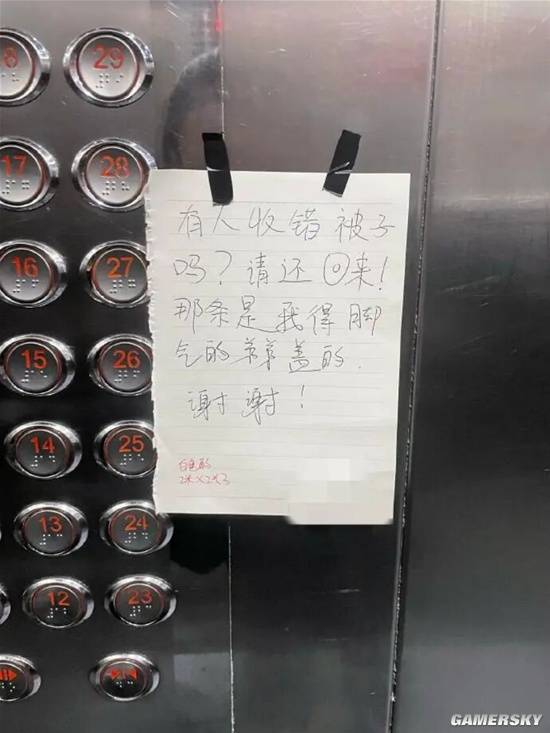 29
28
17
27
16
26
15
25
14
24
13
23
12
有人收错被子
吗？请还回来！
那条是我得脚
气的弟弟盖的.
谢谢！
白色的
GAMERSKY